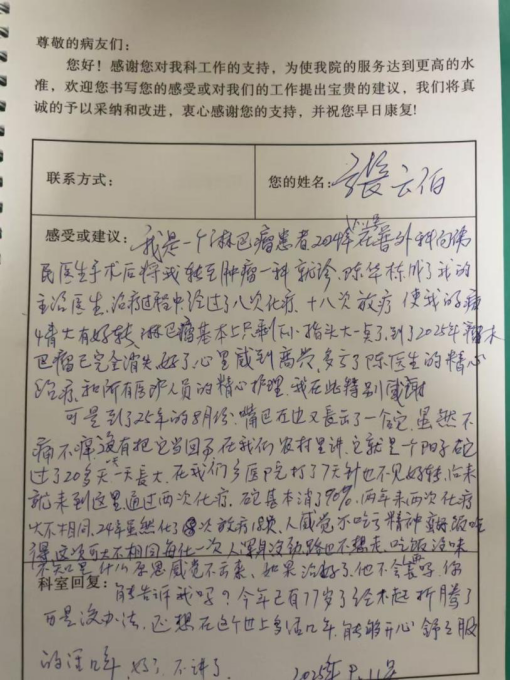 尊敬的病友们：
您好！感谢您对我科工作的支持，为使我院的服务达到更高的水
准，欢迎您书写您的感受或对我们的工作提出宝贵的建议，我们将真
诚的予以采纳和改进，衷心感谢您的支持，并祝您早日康复！
联系方式：
您的姓名：張云伯
感受或建议：我是一个淋巴瘤患者2024年在普外科向
民医生手术后将我转至肿瘤一科就诊．陈华栋成了我的
主治医生．治疗过程中经过了八次化疗．十八次放疗 使我的病
情大有好转．淋巴瘤基本上只剩下小指头大一点了，到了2025年
巴瘤已完全消失，好了，心里感到高兴，多亏了陈医生的精心
治疗和所有医护人员的精心护理．我在此特别感谢
可是到了25年的8月份．嘴巴左边又长出了一个它，虽然不
痛不痒没有把它当回事在我们农村里讲，它就是一个阳子砣
过了20多天一天长大．在我们乡医院打了7天针也不见好转．后来
就来到这里通过两次化疗．砣基本消了90%，两年来两次化疗
大不相同．24年虽然化了8次放疗18次人感觉不吃亏精神 饭吃
得 这次可大不相同每化一次人浑身没劲路也不想走，吃饭没味
什么原因感觉不出来，如果治好了．他不会 吗．你
科室回复：
能告诉我吗？今年已有77岁了经不起折腾了
可是没办法，还想在这个世上多活几年．能够开心 舒舒服服
的活几年，好了，不讲了．
2025年9.11号